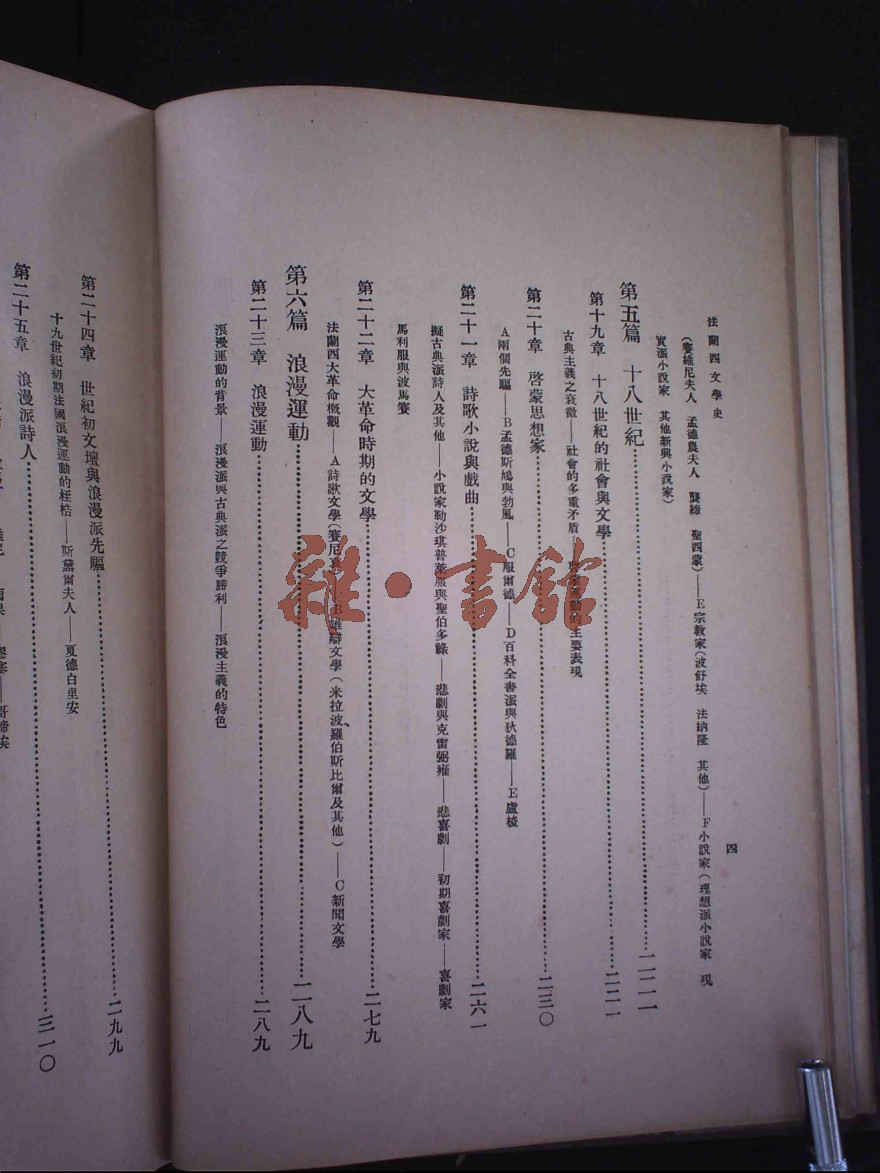 法蘭西文學史
四
(賽維尼夫人　孟德農夫人　龔緕　聖西蒙)——E宗教家(波舒埃　法納隆　其他)——F小說家(理想派小說家　現
實派小說家　其他新興小說家)
第五篇　十八世紀………二二一
第十九章　十八世紀的社會與文學………二二一
古典主義之衰微——社會的多重矛盾——動的主要表現
第二十章　啓蒙思想家………二三〇
A兩個先驅——B孟德斯鳩與勃風——C服爾德——D百科全書派與狄德羅——E盧梭
第二十一章　詩歌小說與戲曲………二六一
擬古典派詩人及其他——小說家勒沙琪普萊服與聖伯多祿——悲劇與克雷弼雍——悲喜劇——初期喜劇家——喜劇家
馬利服與波馬賽
第二十二章　大革命時期的文學………二七九
法蘭西大革命概觀——A詩歌文學(賽尼)——B雄辯文學(米拉波、羅伯斯比爾及其他)——C新聞文學
第六篇　浪漫運動………二八九
第二十三章　浪漫運動………二八九
浪漫運動的背景——浪漫派與古典派之競爭勝利——浪漫主義的特色
第二十四章　世紀初文壇與浪漫派先驅………二九九
十九世紀初期法國浪漫運動的桎梏——斯黛爾夫人——夏德白里安
第二十五章　浪漫派詩人………三一〇
雜·書館